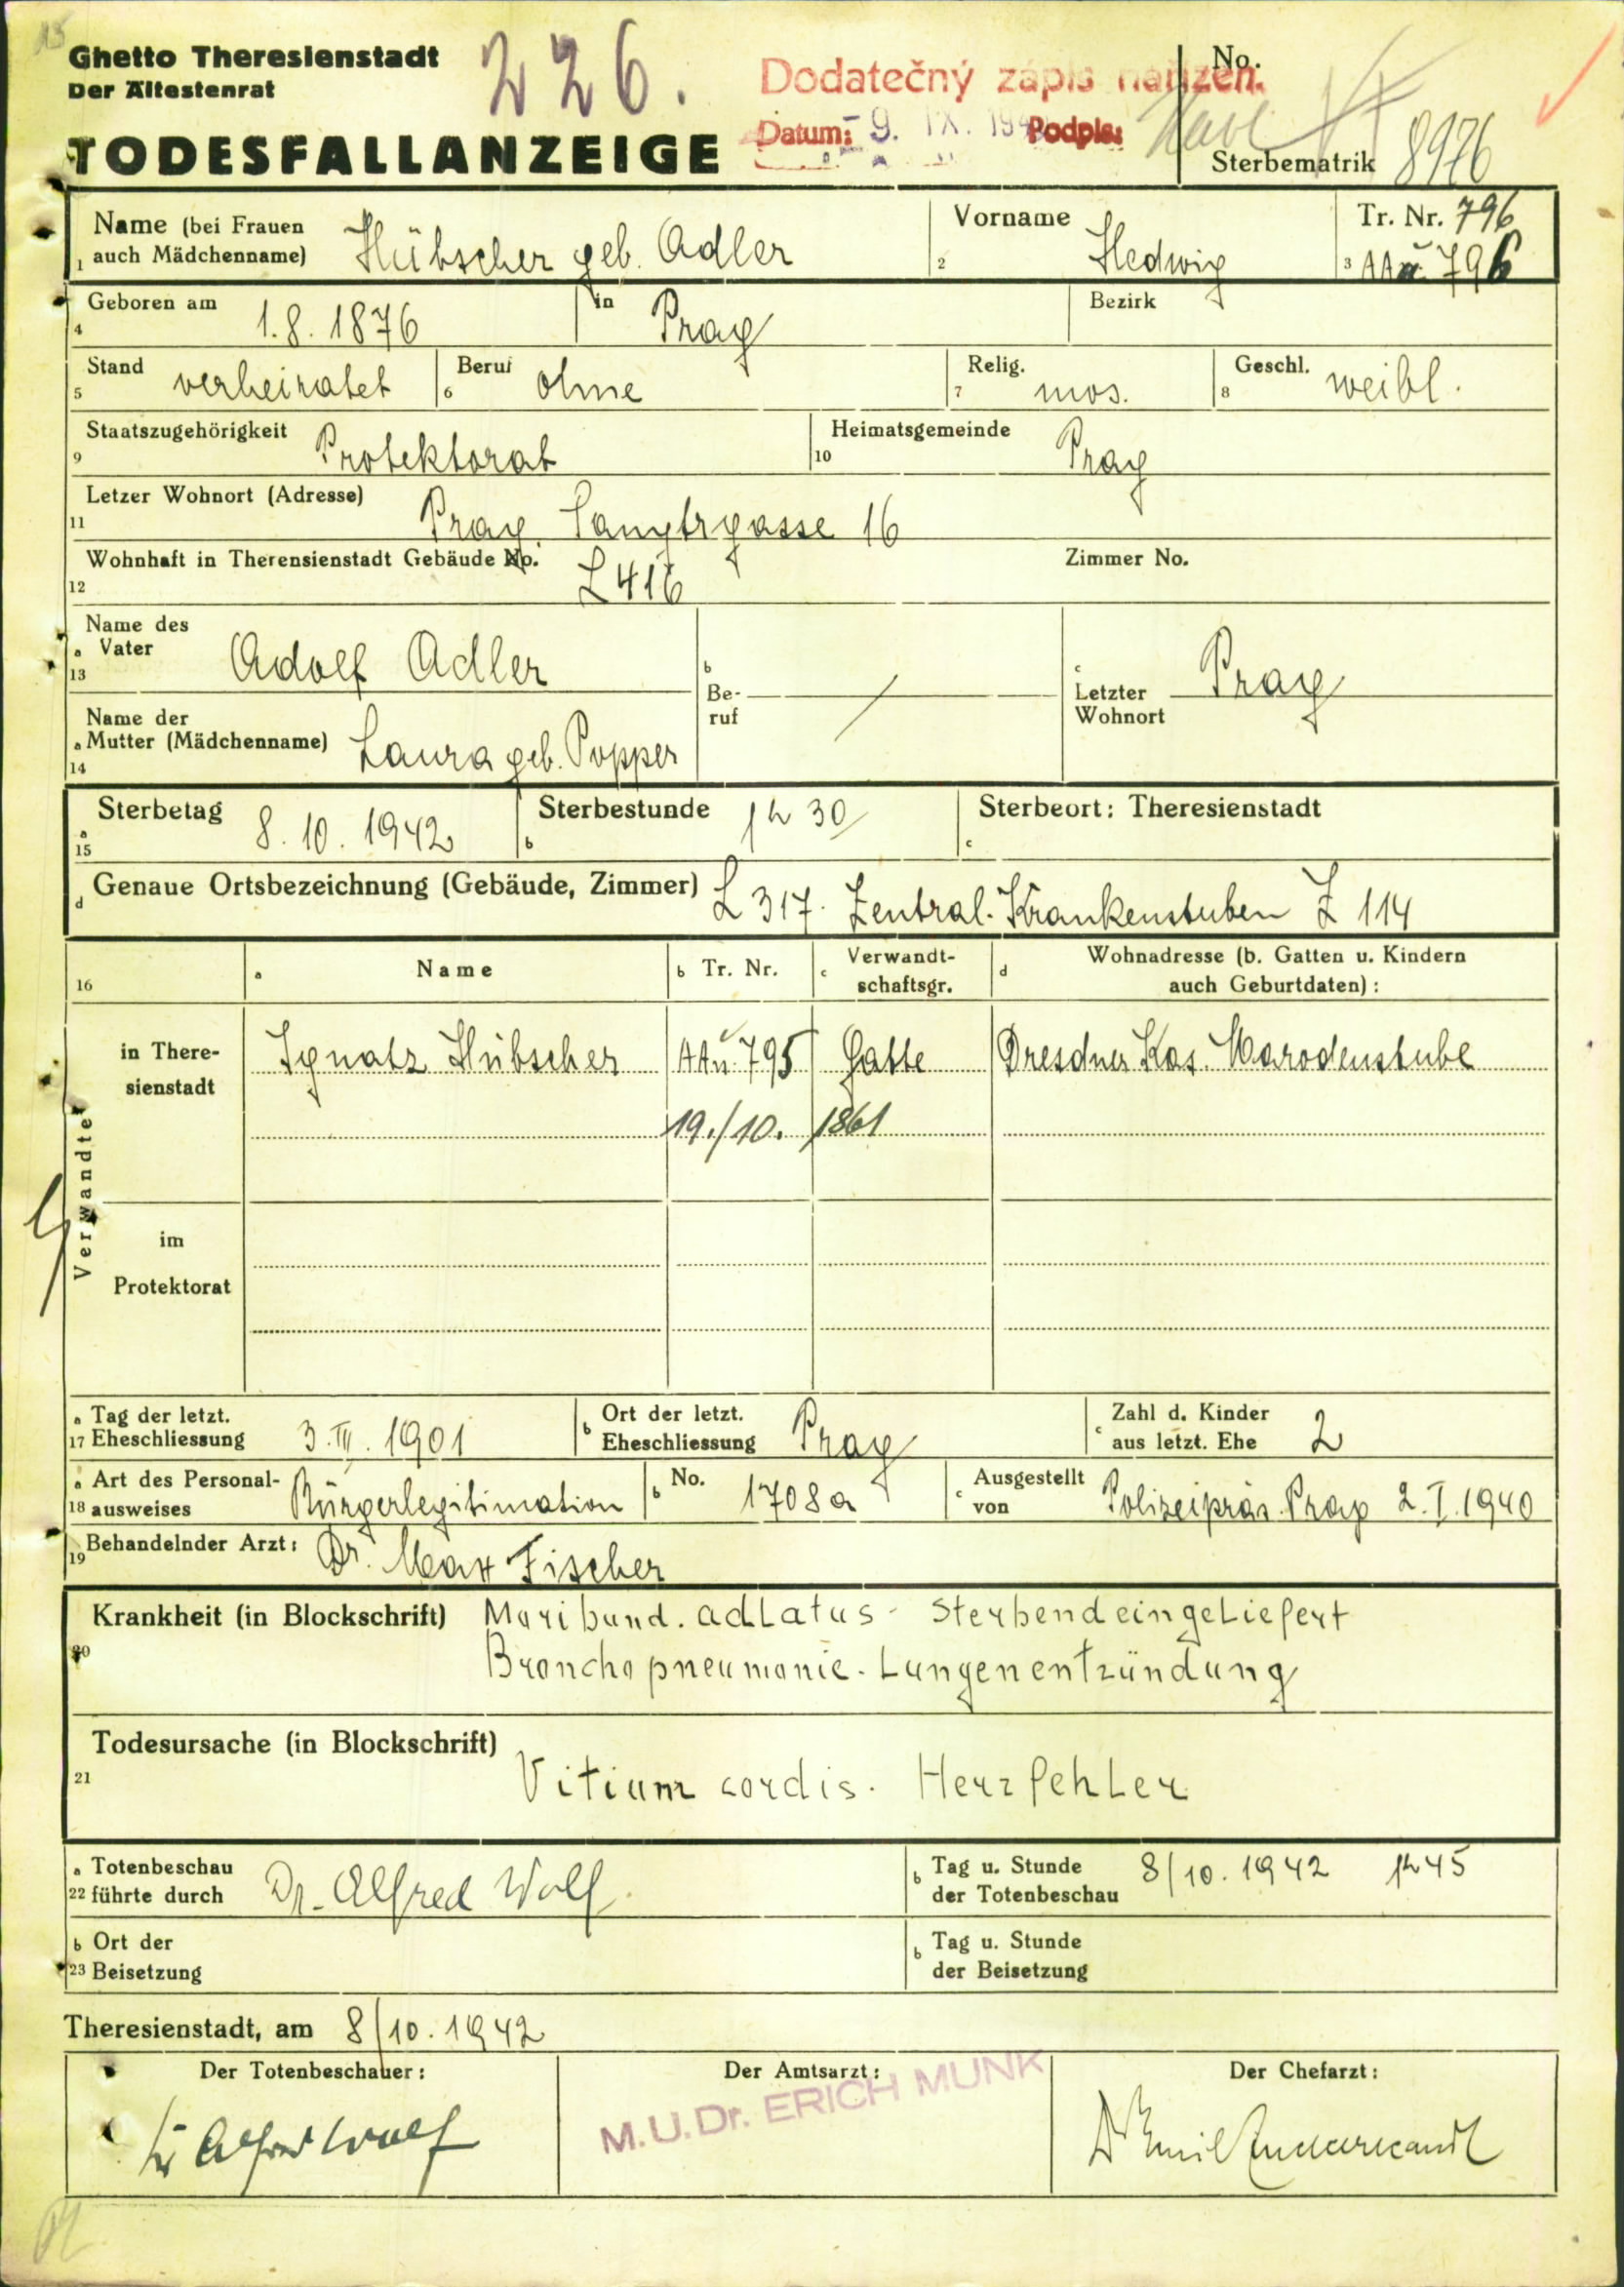 Ghetto Theresienstadt
Der Ältestenrat
226.
TODESFALLANZEIGE
Dodatečný zápis nařízen.
Datum: 9. IX. 194 Podpis:
No.
Sterbematrik 8976
Name (bei Frauen auch Mädchenname) Hübscher geb. Adler
1
Vorname Hedwig
2
Tr. Nr. 796
3 AAu 796
Geboren am 1.8.1876 in Prag Bezirk
4
Stand verheiratet Beruf ohne Relig. mos. Geschl. weibl.
5 6 7 8
Staatszugehörigkeit Protektorat Heimatsgemeinde Prag
9 10
Letzer Wohnort (Adresse) Prag, 16
11
Wohnhaft in Therensienstadt Gebäude No. L 416 Zimmer No.
12
Name des
a Vater Adolf Adler
13
b Be-ruf /
c Letzter Wohnort Prag
Name der
a Mutter (Mädchenname) Laura geb. Popper
14
Sterbetag 8.10.1942 Sterbestunde 1h 30 Sterbeort: Theresienstadt
a 15 b c
d Genaue Ortsbezeichnung (Gebäude, Zimmer) L 317. Zentral-Krankenstuben Z 114
16 a Name b Tr. Nr. c Verwandt-schaftsgr. d Wohnadresse (b. Gatten u. Kindern auch Geburtdaten):
Verwandte
in There-sienstadt
Ignatz Hübscher AAu 795 Gatte Dresdner Kas. Marodenstube
19./10. 1861
im
Protektorat
a Tag der letzt.
17 Eheschliessung 3.III.1901
b Ort der letzt. Eheschliessung Prag
c Zahl d. Kinder aus letzt. Ehe 2
a Art des Personal-
18 ausweises Bürgerlegitimation
b No. 1708a
c Ausgestellt von Polizeipräs. Prag 2.I.1940
19 Behandelnder Arzt: Dr. Max Fischer
Krankheit (in Blockschrift) Moribund. adlatus - Sterbend eingeliefert
20 Bronchopneumonie - Lungenentzündung
Todesursache (in Blockschrift)
21 Vitium cordis. Herzfehler
a Totenbeschau
22 führte durch Dr. Alfred Wolf
b Tag u. Stunde der Totenbeschau 8/10.1942 1h45
b Ort der
23 Beisetzung
b Tag u. Stunde der Beisetzung
Theresienstadt, am 8/10.1942
Der Totenbeschauer: Der Amtsarzt: Der Chefarzt:
M.U.Dr. ERICH MUNK